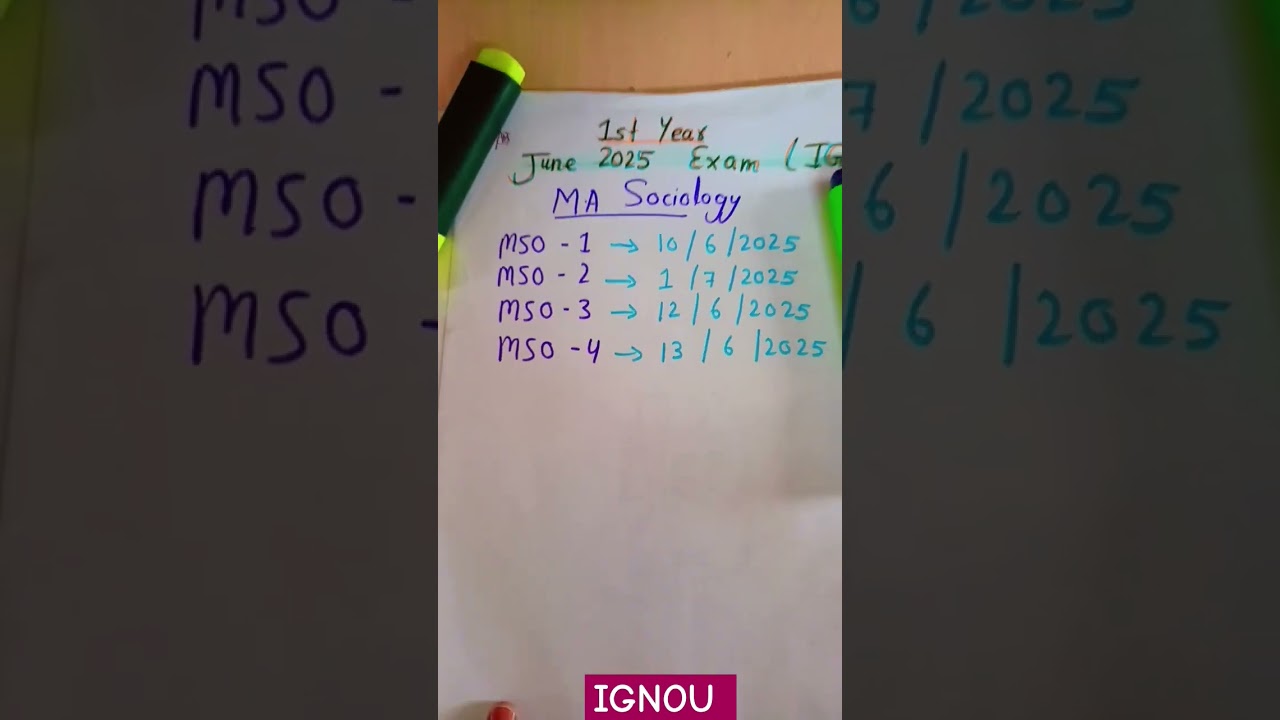 1st Year
June 2025 Exam (IG
M.A Sociology
MSO - 1 → 10/6/2025
MSO - 2 → 1/7/2025
MSO - 3 → 12/6/2025
MSO - 4 → 13/6/2025
IGNOU